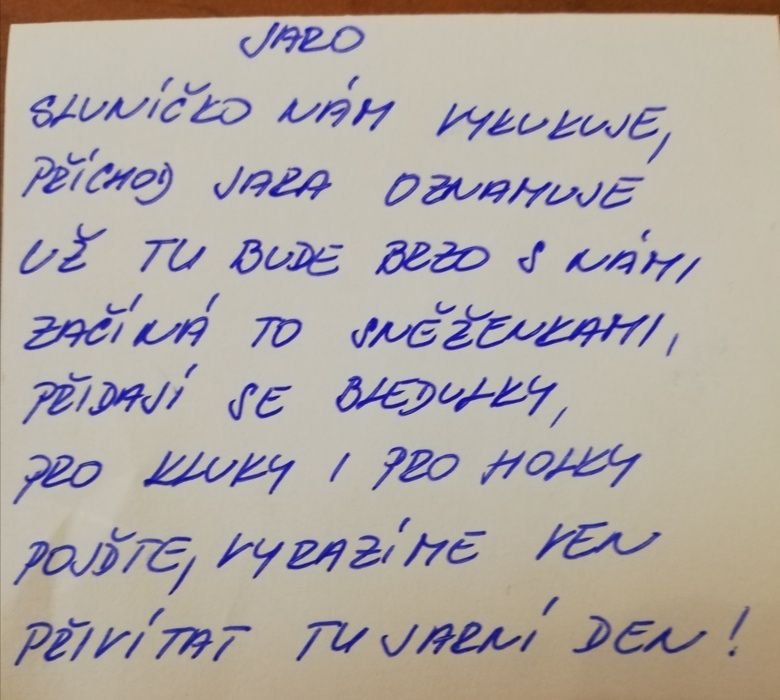 JARO
SLUNÍČKO NÁM VYKUKUJE,
PŘÍCHOD JARA OZNAMUJE
UŽ TU BUDE BRZO S NÁMI
ZAČÍNÁ TO SNĚŽENKAMI,
PŘIDAJÍ SE BLEDULKY,
PRO KLUKY I PRO HOLKY
POJĎTE, VYRAZÍME VEN
PŘIVÍTAT TU JARNÍ DEN!